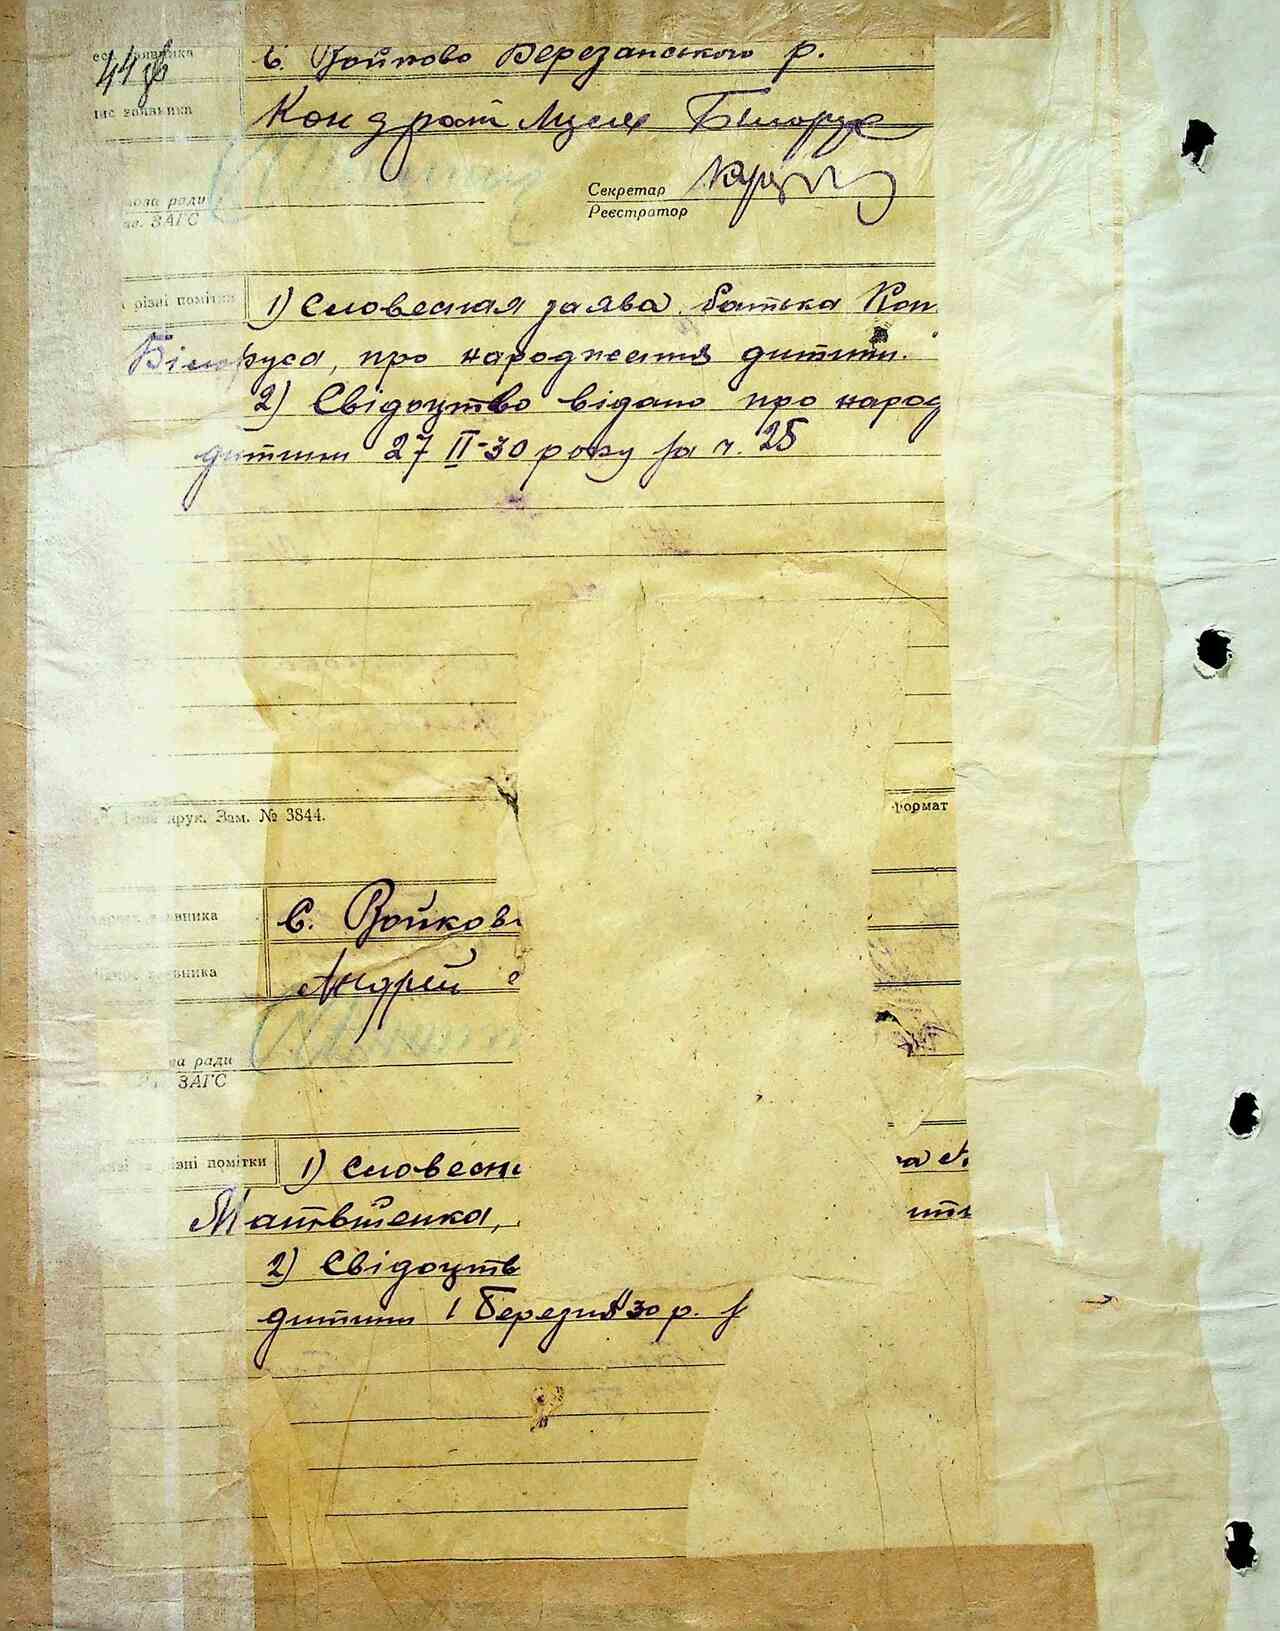 с. Войково Березанського р.
44
Кондрат Білорус
Секретар
ва ради
Реєстратор
ЗАГС
різні помітки 1) Словесная заява батька Кон
Білоруса, про народження дитини.
2) Свідоцтво відано про народ
дитини 27 II-30 року за ч. 25
друк. Зам. № 3844.
формат
с. Войков
Андрей
ва ради
ЗАГС
різні помітки 1) Словесн
Матвієнка,
2) Свідоцтв
дитини 1 березня 30 р. з